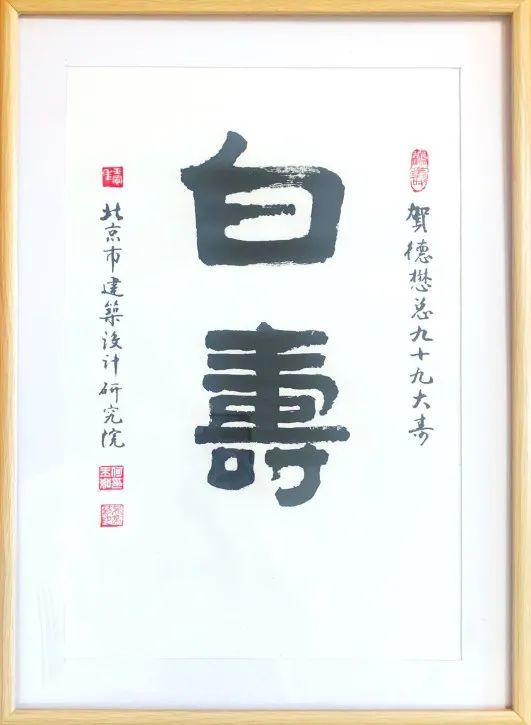 賀德懋总九十九大寿
白壽
北京市建築设计研究院